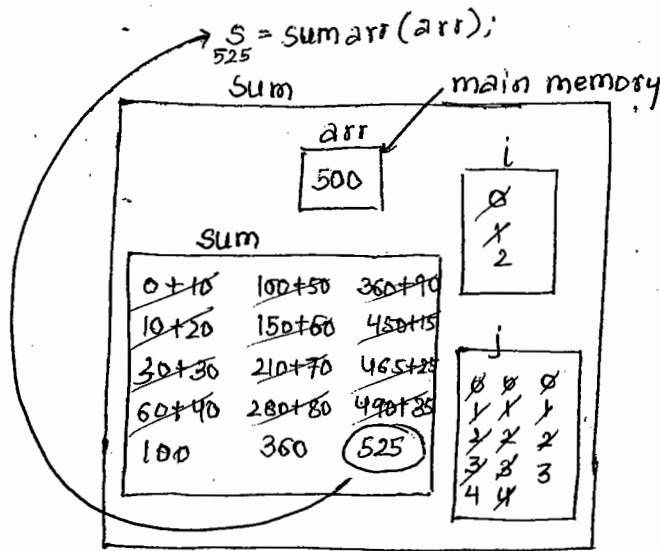 S = sumarr(arr);
525
sum
main memory
arr
500
i
0
1
2
sum
0+10 100+50 360+90
10+20 150+60 450+15
30+30 210+70 465+25
60+40 280+80 490+35
100 360 525
j
0 0 0
1 1 1
2 2 2
3 3 3
4 4